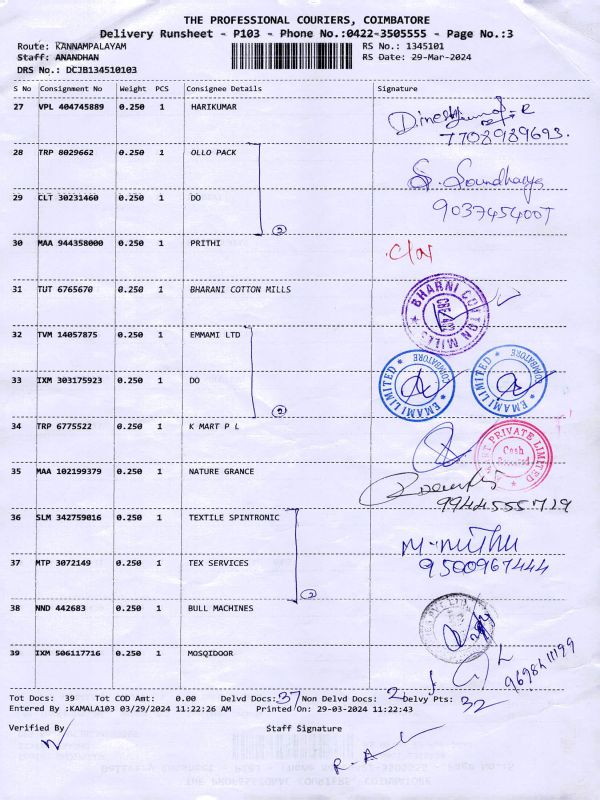 THE PROFESSIONAL COURIERS, COIMBATORE
Delivery Runsheet - P103 - Phone No.:0422-3505555 - Page No.:3
Route: KANNAMPALAYAM RS No.: 1345101
Staff: ANANDHAN RS Date: 29-Mar-2024
DRS No.: DCJB134510103
S No Consignment No Weight PCS Consignee Details Signature
27 VPL 404745889 0.250 1 HARIKUMAR
7708989693.
28 TRP 8029662 0.250 1 OLLO PACK S. Soundharya
29 CLT 30231460 0.250 1 DO
②
30 MAA 944358000 0.250 1 PRITHI
31 TUT 6765670 0.250 1 BHARANI COTTON MILLS
BHARNI COTTON MILLS
CBE
32 TVM 14057875 0.250 1 EMMAMI LTD
EMAMI LIMITED COIMBATORE EMAMI LIMITED COIMBATORE
33 IXM 303175923 0.250 1 DO
②
34 TRP 6775522 0.250 1 K MART P L
PRIVATE LIMITED
Cash
35 MAA 102199379 0.250 1 NATURE GRANCE
36 SLM 342759016 0.250 1 TEXTILE SPINTRONIC
M. MUTHU
37 MTP 3072149 0.250 1 TEX SERVICES 9500967444
②
38 NND 442683 0.250 1 BULL MACHINES
39 IXM 506117716 0.250 1 MOSQIDOOR
Tot Docs: 39 Tot COD Amt: 0.00 Delvd Docs: 37 Non Delvd Docs: 2 Delvy Pts: 32
Entered By :KAMALA103 03/29/2024 11:22:26 AM Printed On: 29-03-2024 11:22:43
Verified By Staff Signature